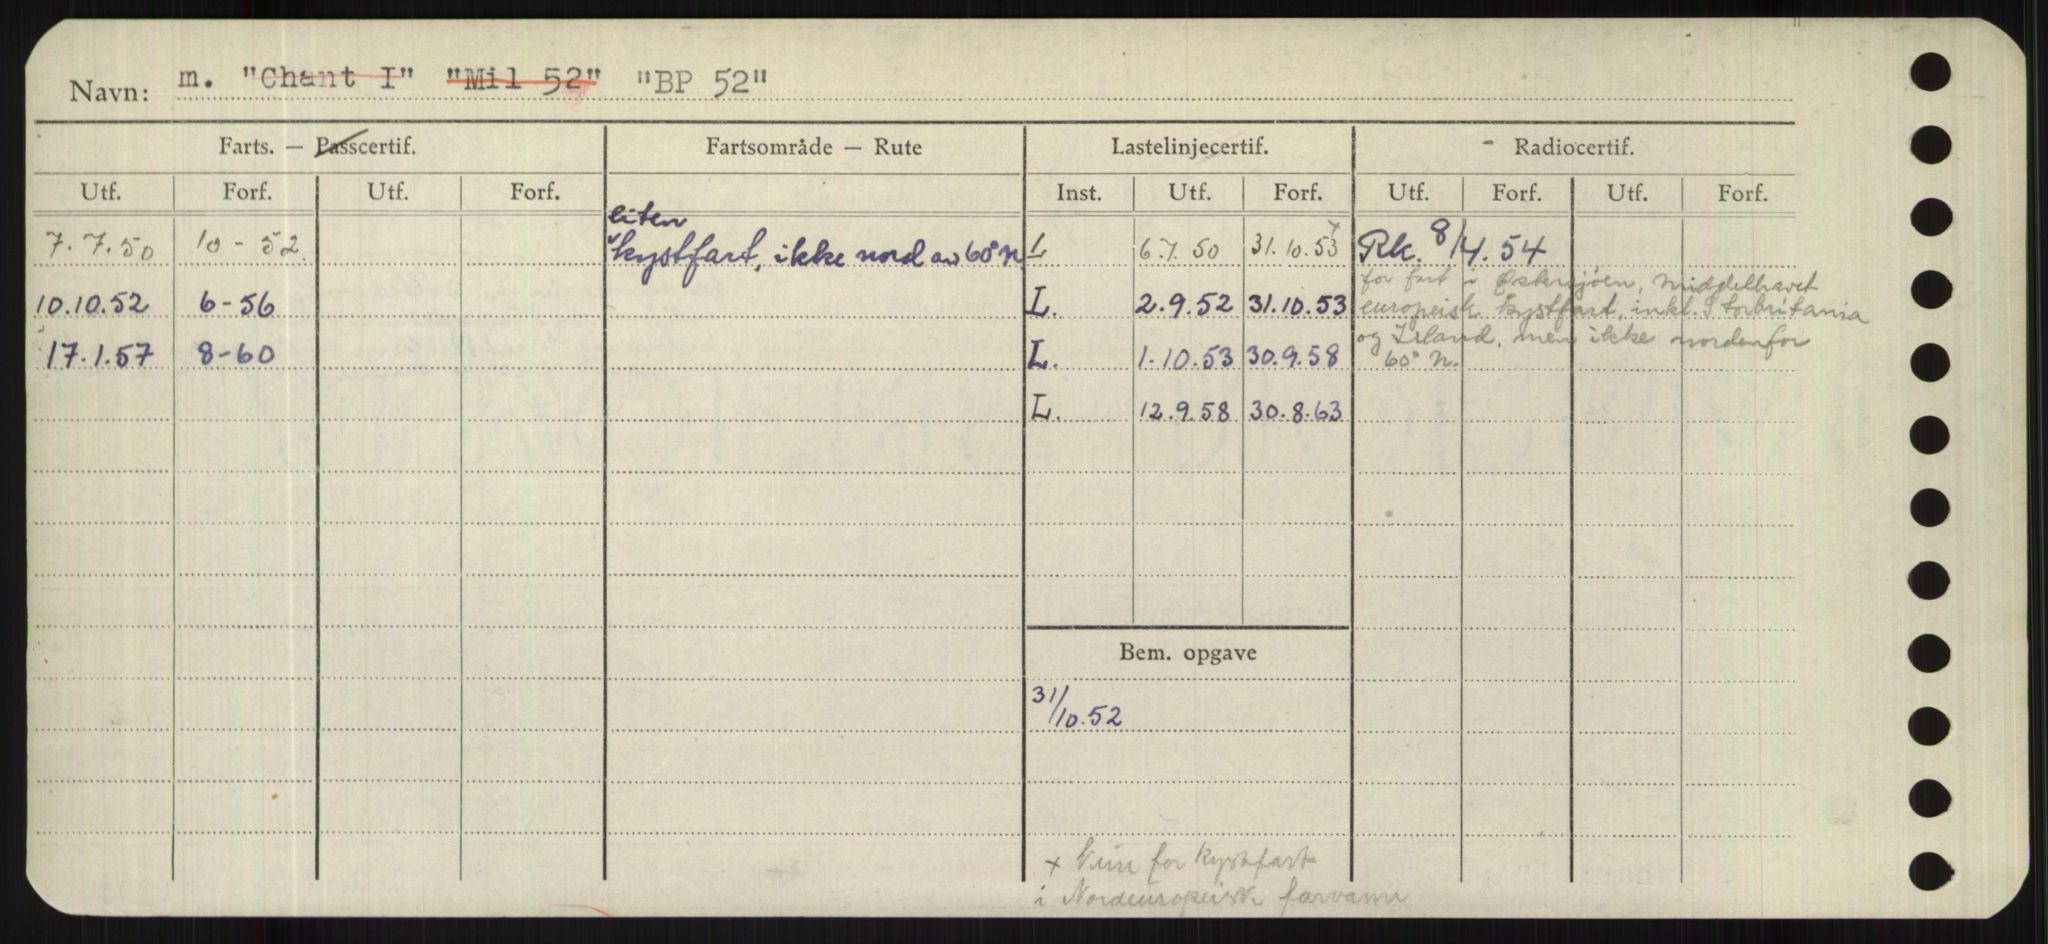 Navn: m. "Chant I" "Mil 52" "BP 52"
Farts. — Passcertif. Fartsområde — Rute Lastelinjecertif. Radiocertif.
Utf. Forf. Utf. Forf. Inst. Utf. Forf. Utf. Forf. Utf. Forf.
liten
7.7.50 10-52 kystfart, ikke nord av 60° N L 6.7.50 31.10.53 Rk. 8/4.54
for fart i Østersjøen, middelhavet
10.10.52 6-56 L. 2.9.52 31.10.53 europeisk kystfart, inkl. Storbritania
og Irland, men ikke nordenfor
17.1.57 8-60 L. 1.10.53 30.9.58 60° N.
L. 12.9.58 30.8.63
Bem. opgave
31/10.52
+ Kun for kystfart
i Nordeuropeisk farvann